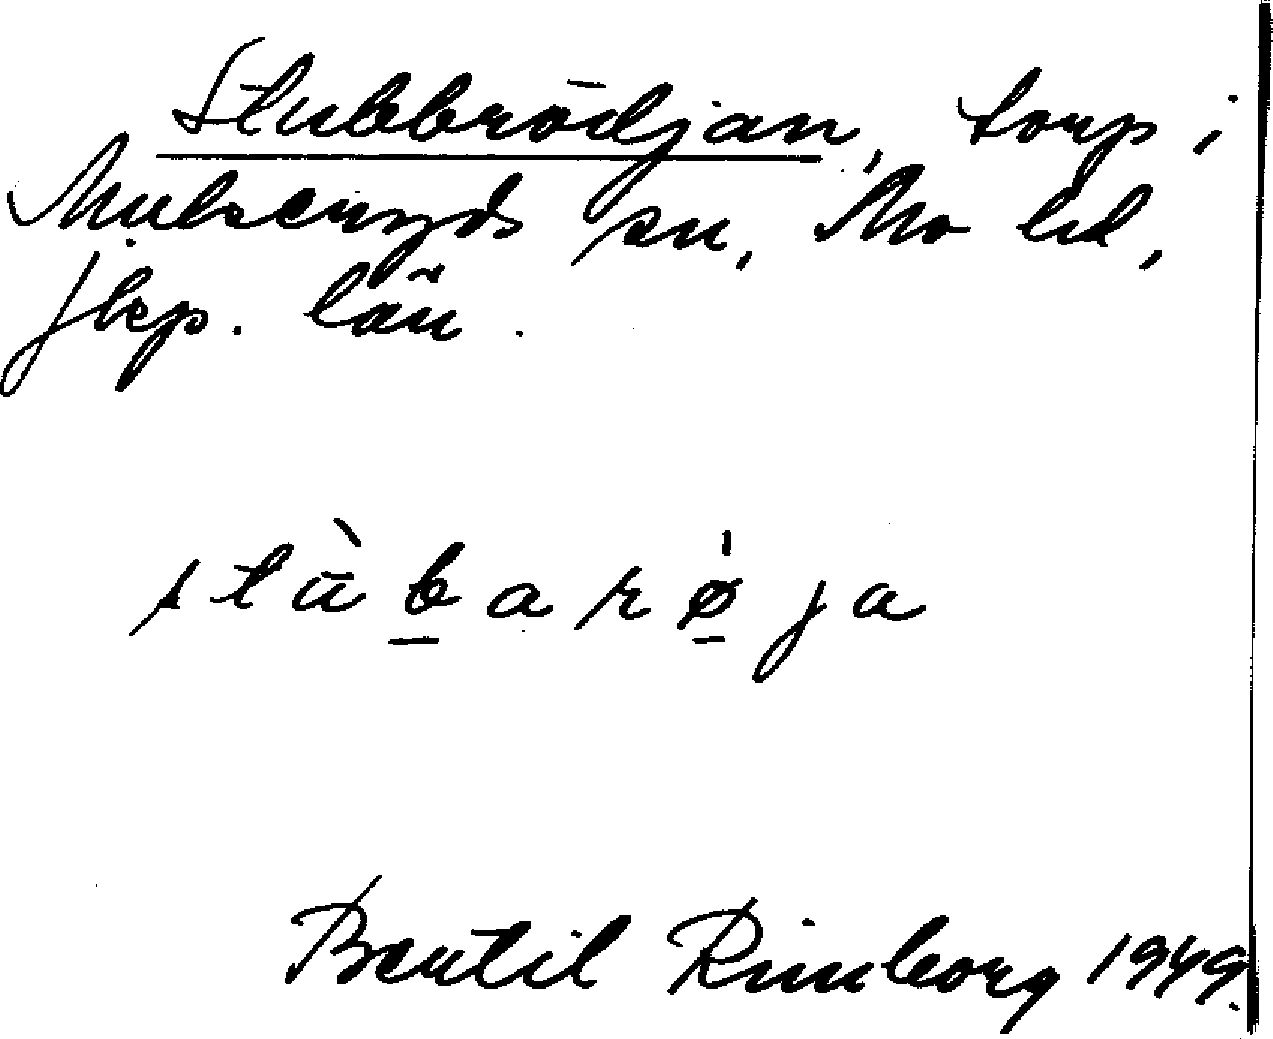 Stubbrödjan, torp i
Mulseryds sn, Mo hd,
Jkp. län.
stùbarø̀ja
Bertil Rimborg 1949.